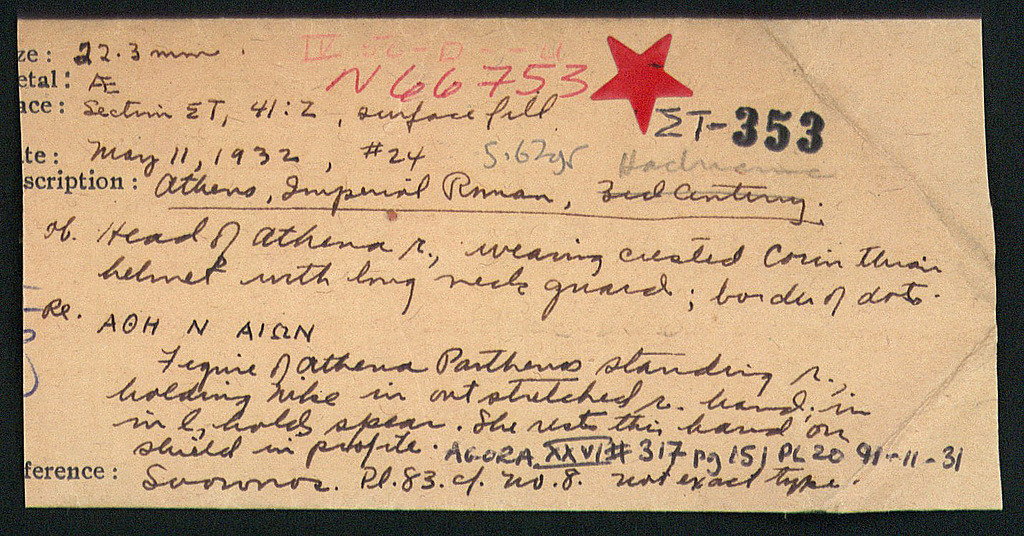 ze: 22.3 mm.
IV
N 66753
etal: Æ
ace: Section ΣΤ, 41:Z, surface fill
ΣΤ-353
te: May 11, 1932, #24 5.62gr
Hadrianic
scription: Athens, Imperial Roman, 3rd Century.
ob. Head of Athena r., wearing crested Corinthian
helmet with long neck guard; border of dots.
Re. ΑΘΗ Ν ΑΙΩΝ
Figure of Athena Parthenos standing r.,
holding Nike in outstretched r. hand; in
in l, holds spear. She rests this hand on
shield in profile. AGORA XXVI # 317 pg 151 PL 20 91-11-31
ference: Svoronos. Pl. 83. cf. no. 8. not exact type.